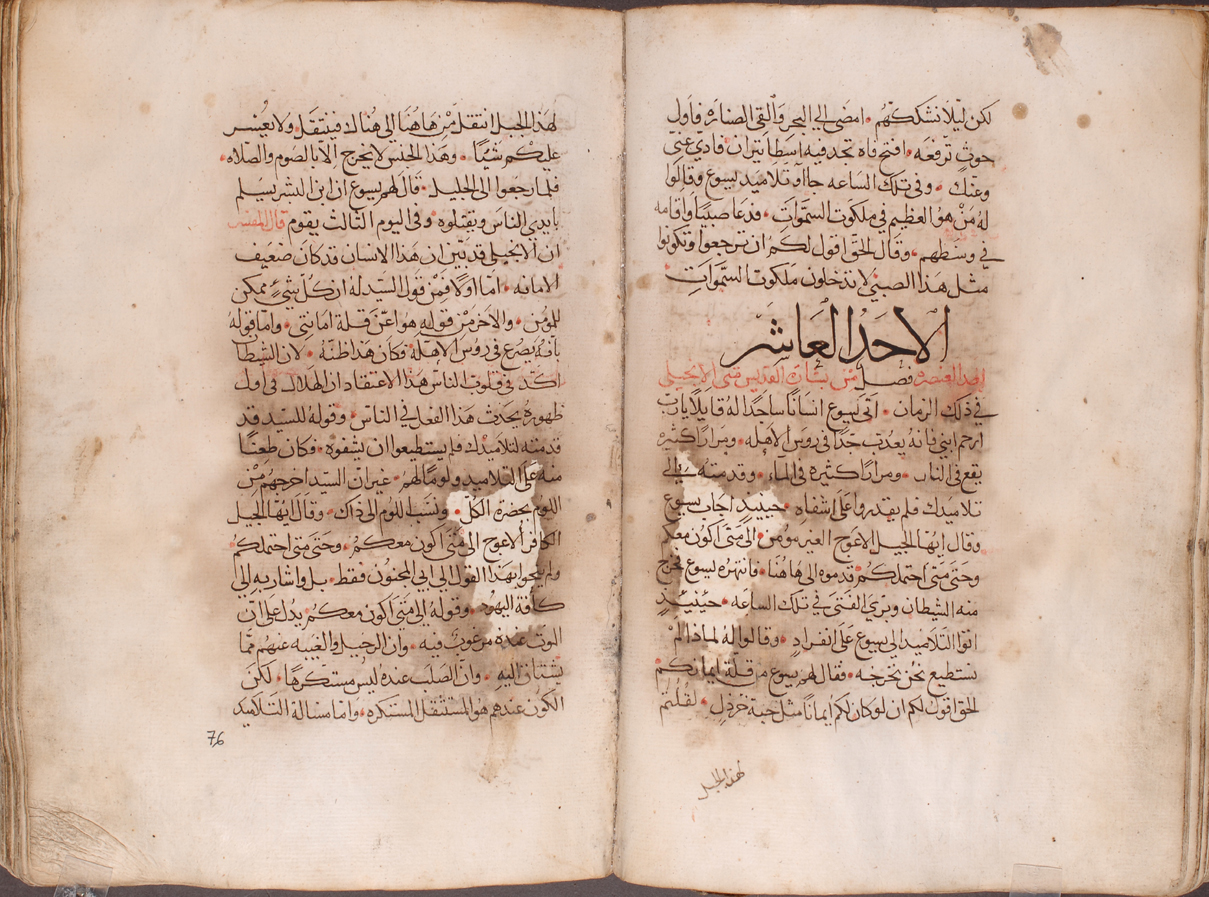 لكن ليلا نشككهم • امضي الي البحر والقي الصناره فاول
حوت ترفعه • افتح فاه تجد فيه اسطاتيران فادي عني
وعنك • وفي تلك الساعه جااو تلاميد يسوع وقالوا
له من هو العظيم في ملكوت السموات • فدعا صبيا واقامه
في وسطهم • وقال الحق اقول لكم ان ترجعوا وتكونوا
مثل هذا الصبي لا تدخلون ملكوت السموات
الاحد العاشر
احد العنصره فصل من بشارة القديس متى الانجيلي
في ذلك الزمان • اتى ليسوع انسانا ساجدا له قايلا يارب
ارحم ابني فانه يعدب جدا في روس الاهله • ومرارا كثيره
يقع في النار • ومرارا كثيره في الماء • وقدمته الي
تلاميدك فلم يقدروا على اشفايه • حينيد اجاب يسوع
وقال ايها الجيل الاعوج الغير مومن • الى متى اكون معكم
وحتى متى احتملكم قدموه الى هاهنا • فانتهره يسوع فخرج
منه الشيطان وبري الفتى في تلك الساعه • حينيد
اتوا التلاميد الي يسوع على انفراد • وقالوا له لماذا لم
نستطيع نحن نخرجه • فقال لهم يسوع من قلة ايمانكم
الحق اقول لكم ان لو كان لكم ايمانا مثل حبة خردل • لقلتم
لهذا الجبل
لهذا الجبل انتقل من هاهنا الى هناك فينتقل • ولا يعسر
عليكم شيا • وهذا الجنس لا يخرج الا بالصوم والصلاه •
فلما رجعوا الى الجليل • قال لهم يسوع ان ابن البشر يسلم
بايدى الناس ويقتلوه • وفى اليوم الثالث يقوم قال المفسر
ان الانجيلي قد بين ان هذا الانسان قد كان ضعيف
الامانه • اما اولا فمن قول السيد له ان كل شي ممكن
للمومن • والاخر من قوله هو اعن قلة امانتي • واما قوله
بانه يصرع في روس الاهلة فكان هذا ظنه • لان الشيطان
اكد في قلوب الناس هذا الاعتقاد ان الهلال في اول
ظهوره يحدث هذا الفعل في الناس • وقوله للسيد قد
قدمته لتلاميدك فلم يستطيعوا ان يشفوه • فكان طعنا
منه على التلاميد ولوما لهم • غير ان السيد اخرجهم من
اللوم بحضرة الكل • ونسب اللوم الى ذاك • وقال ايها الجيل
الكافر الاعوج الى متى اكون معكم • وحتى متى احتملكم
ولم بهذا القول الي ابي المجنون فقط • بل واشار به الي
كافة اليهود • وقوله الي متى اكون معكم يدل على ان
الموت عنده مرغوب فيه • وان الرحيل والغيبه عنهم مما
يشتاق اليه • وان الصلب عنده ليس مستكرها • لكن
الكون عندهم هو المستثقل المستكره • واما مسالة التلاميد
76